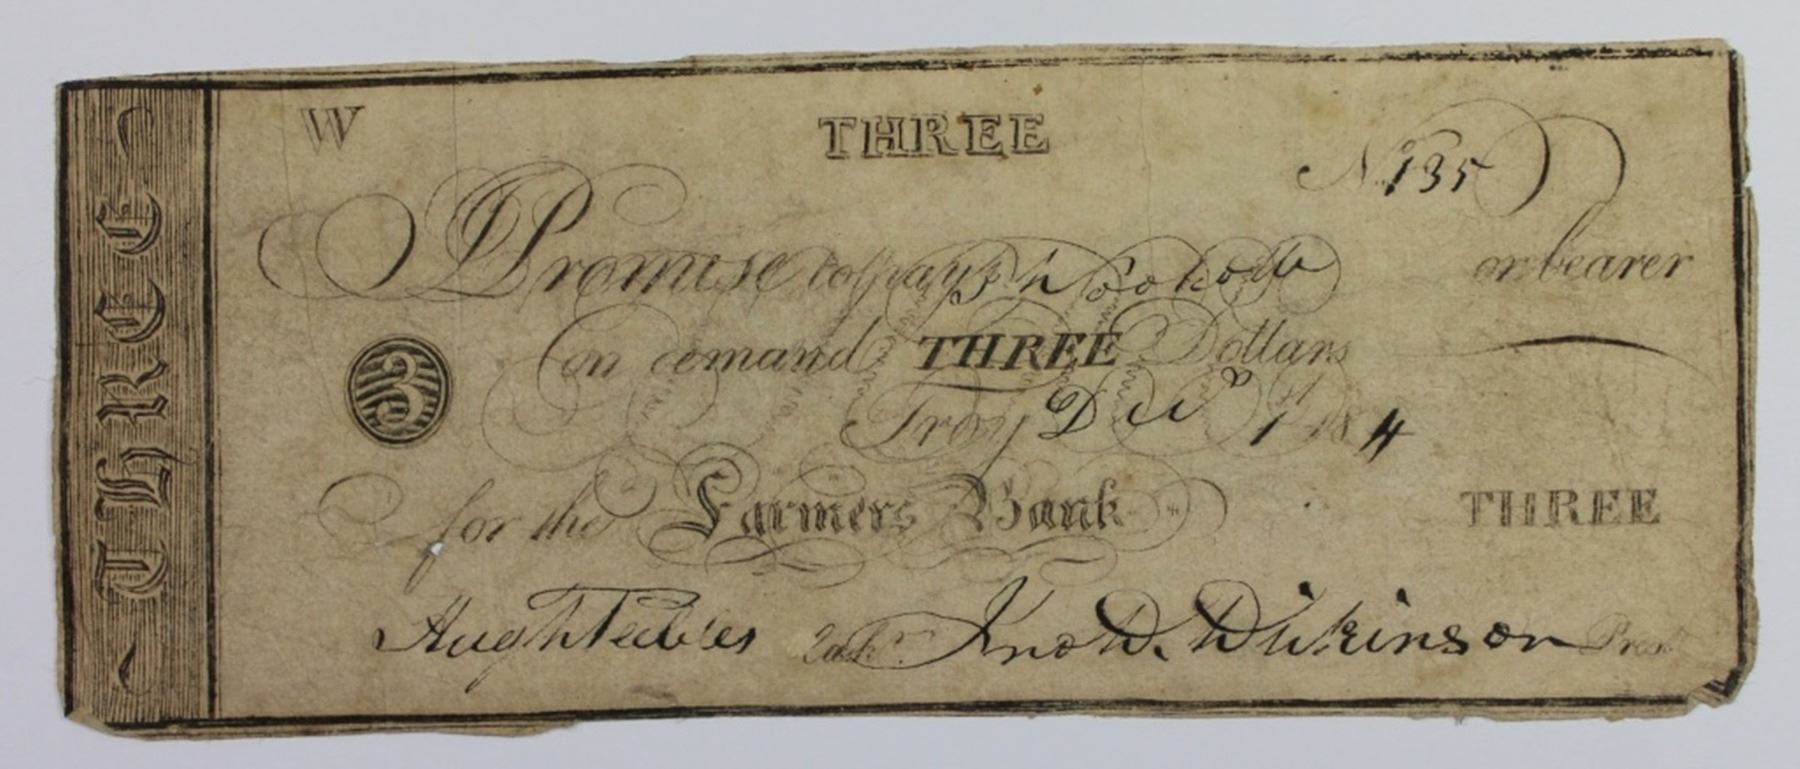 THREE
W
THREE
No 135
I Promise to pay or bearer
3
on demand THREE Dollars
Troy Decr 1st 18 4
for the Farmers Bank
THREE
Hugh Peebles Cashr. Jno D. Dickinson Prest